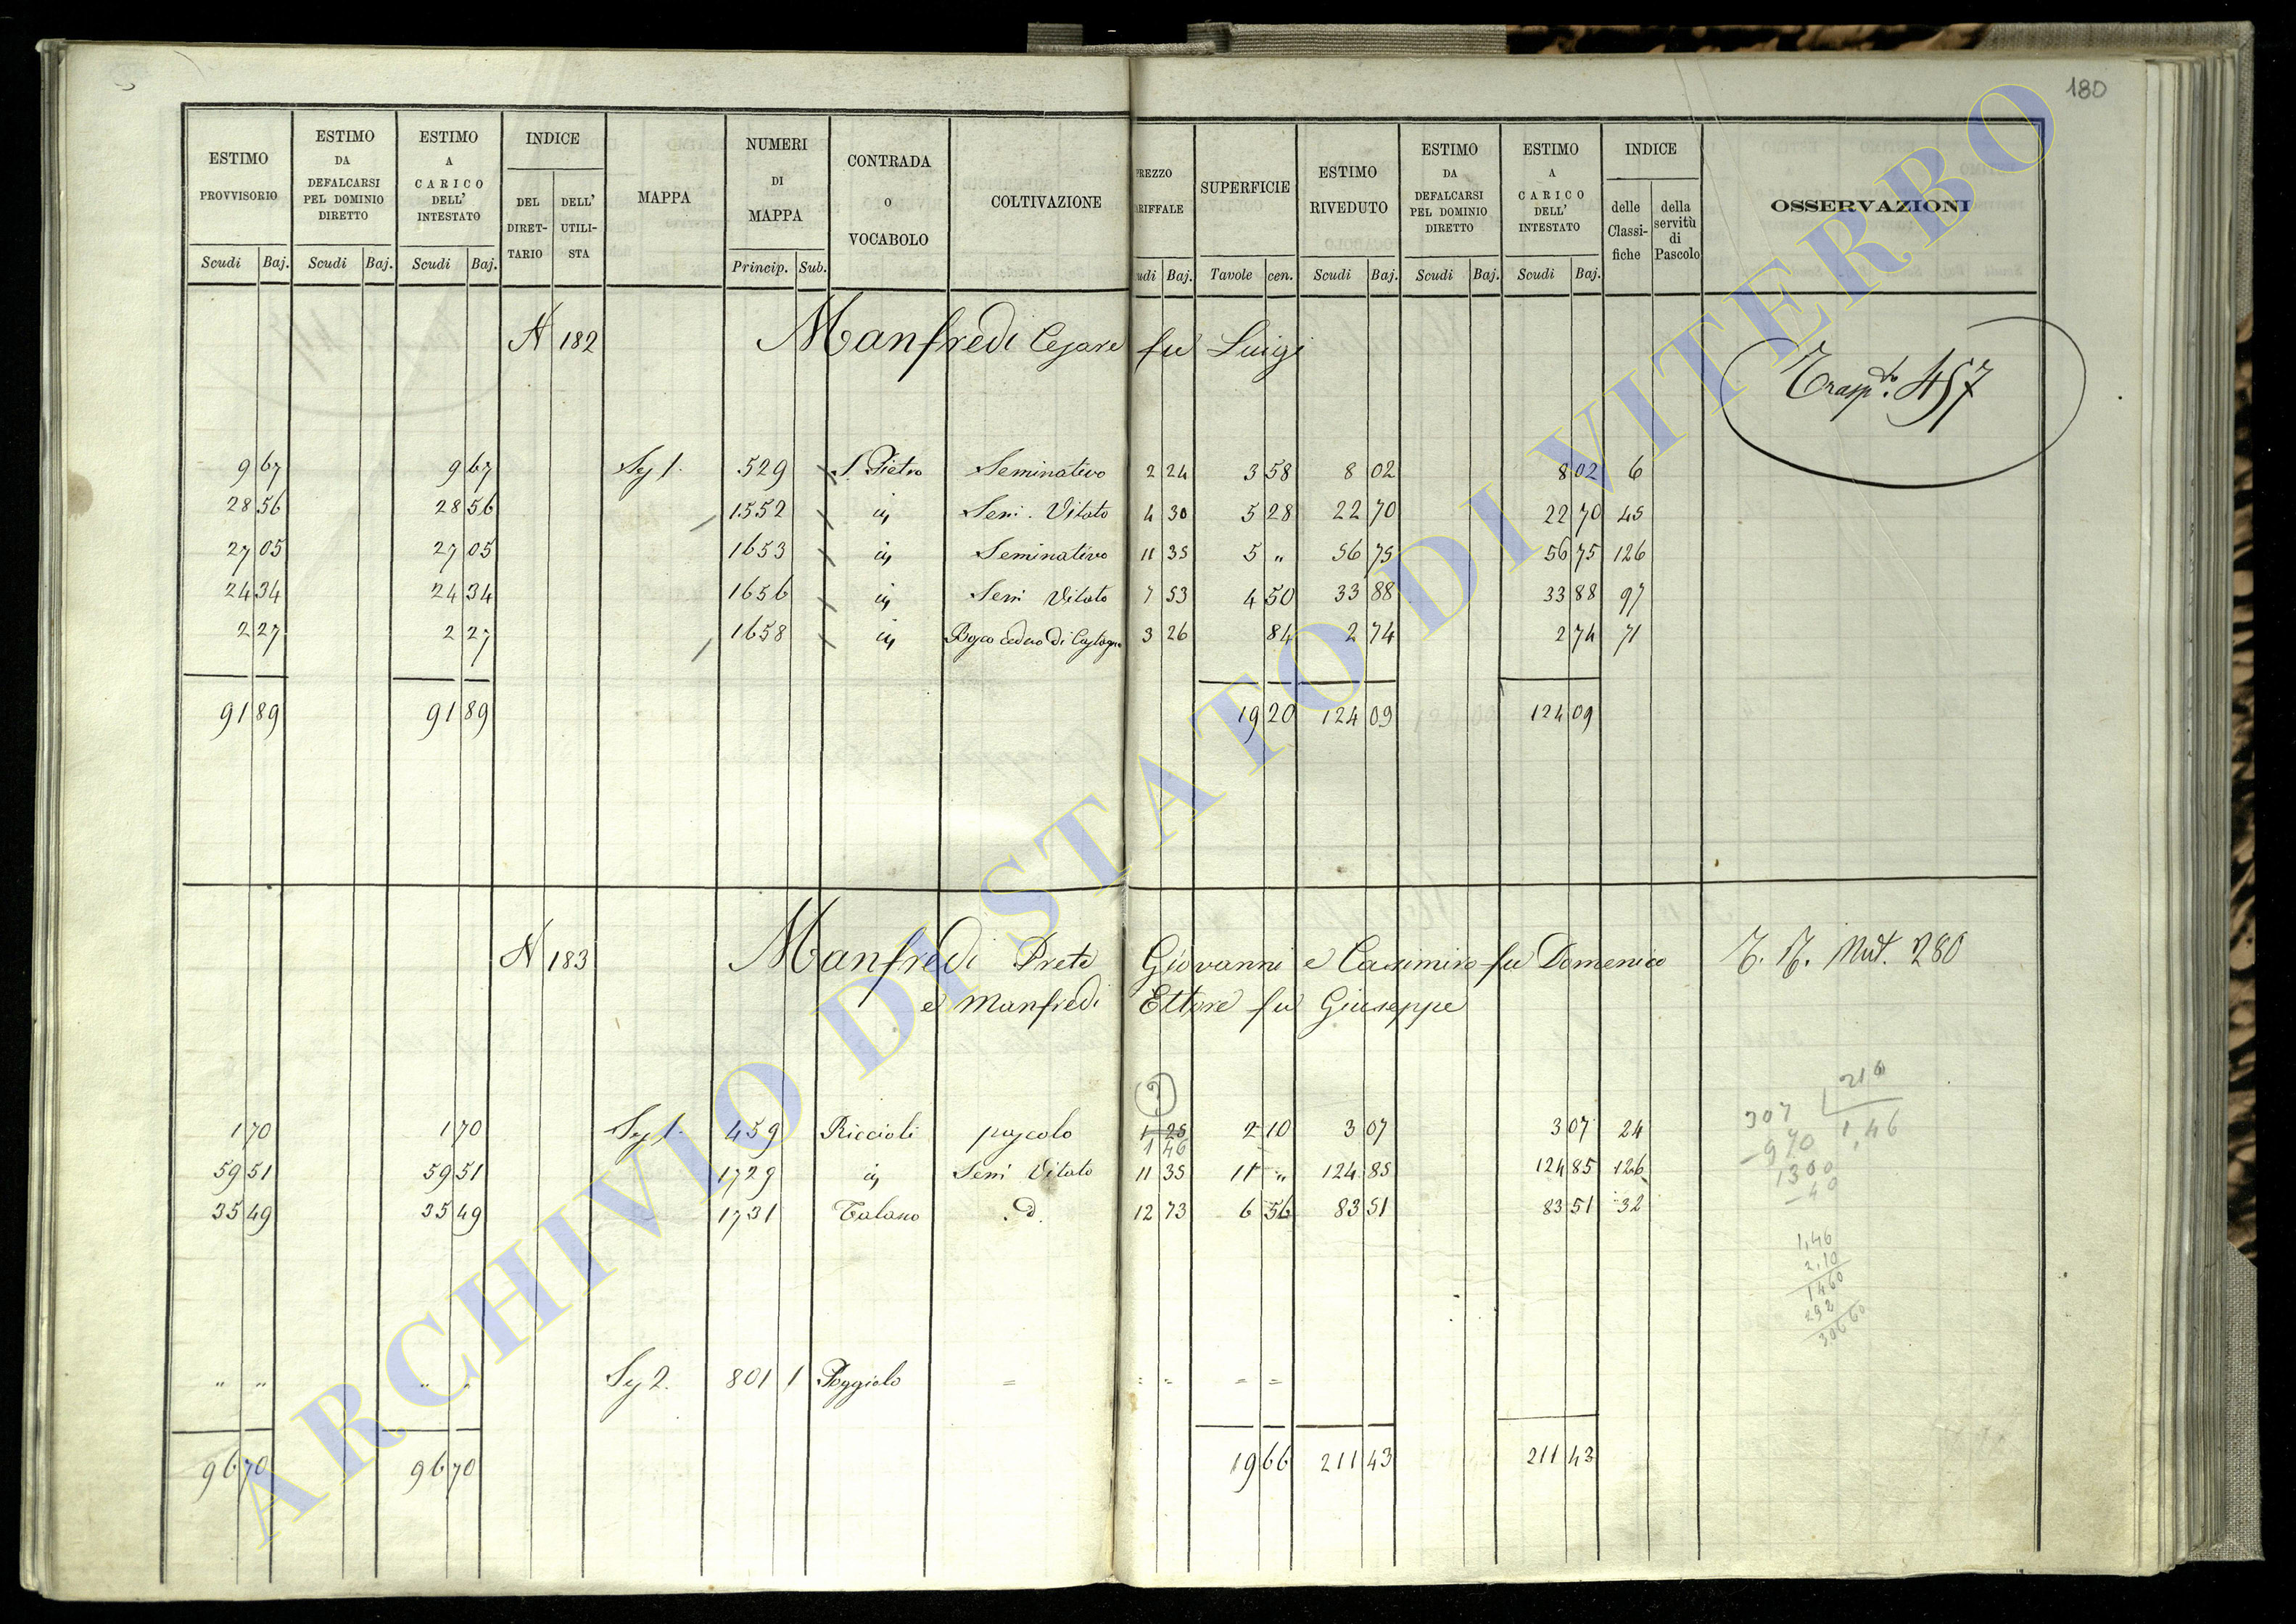 180
ESTIMO PROVVISORIO Scudi Baj.
ESTIMO DA DEFALCARSI PEL DOMINIO DIRETTO Scudi Baj.
ESTIMO A CARICO DELL' INTESTATO Scudi Baj.
INDICE DEL DIRETTARIO DELL' UTILISTA
MAPPA
NUMERI DI MAPPA Princip. Sub.
CONTRADA O VOCABOLO
COLTIVAZIONE
REZZO RIFFALE udi Baj.
SUPERFICIE Tavole cen.
ESTIMO RIVEDUTO Scudi Baj.
ESTIMO DA DEFALCARSI PEL DOMINIO DIRETTO Scudi Baj.
ESTIMO A CARICO DELL' INTESTATO Scudi Baj.
INDICE delle Classifiche della servitù di Pascolo
OSSERVAZIONI
N 182 Manfredi Cesare fu Luigi
Trasp.to 457
9 67 9 67 Sez 1. 529 S. Pietro Seminativo 2 24 3 58 8 02 8 02 6
28 56 28 56 1552 id Semi. Vitato 4 30 5 28 22 70 22 70 45
27 05 27 05 1653 id Seminativo 11 35 5 " 56 75 56 75 126
24 34 24 34 1656 id Semi Vitato 7 53 4 50 33 88 33 88 97
2 27 2 27 1658 id Bosco ceduo di Castagno 3 26 84 2 74 2 74 71
91 89 91 89 19 20 124 09 124 09
N 183 Manfredi Prete Giovanni e Casimiro fu Domenico T. T. Mut. 280
e Manfredi Ettore fu Giuseppe
1 70 1 70 Sez 1. 459 Riccioli pascolo 1 25 2 10 3 07 3 07 24
1 46
59 51 59 51 1729 id Semi Vitato 11 35 11 " 124 85 124 85 126
35 49 35 49 1731 Talano d. 12 73 6 56 83 51 83 51 32
307 210
970 1,46
1300
40
1,46
2,10
1460
292
30660
" " " " Sez 2. 801 1 Poggiolo = " " = =
96 70 96 70 19 66 211 43 211 43
ARCHIVIO DI STATO DI VITERBO